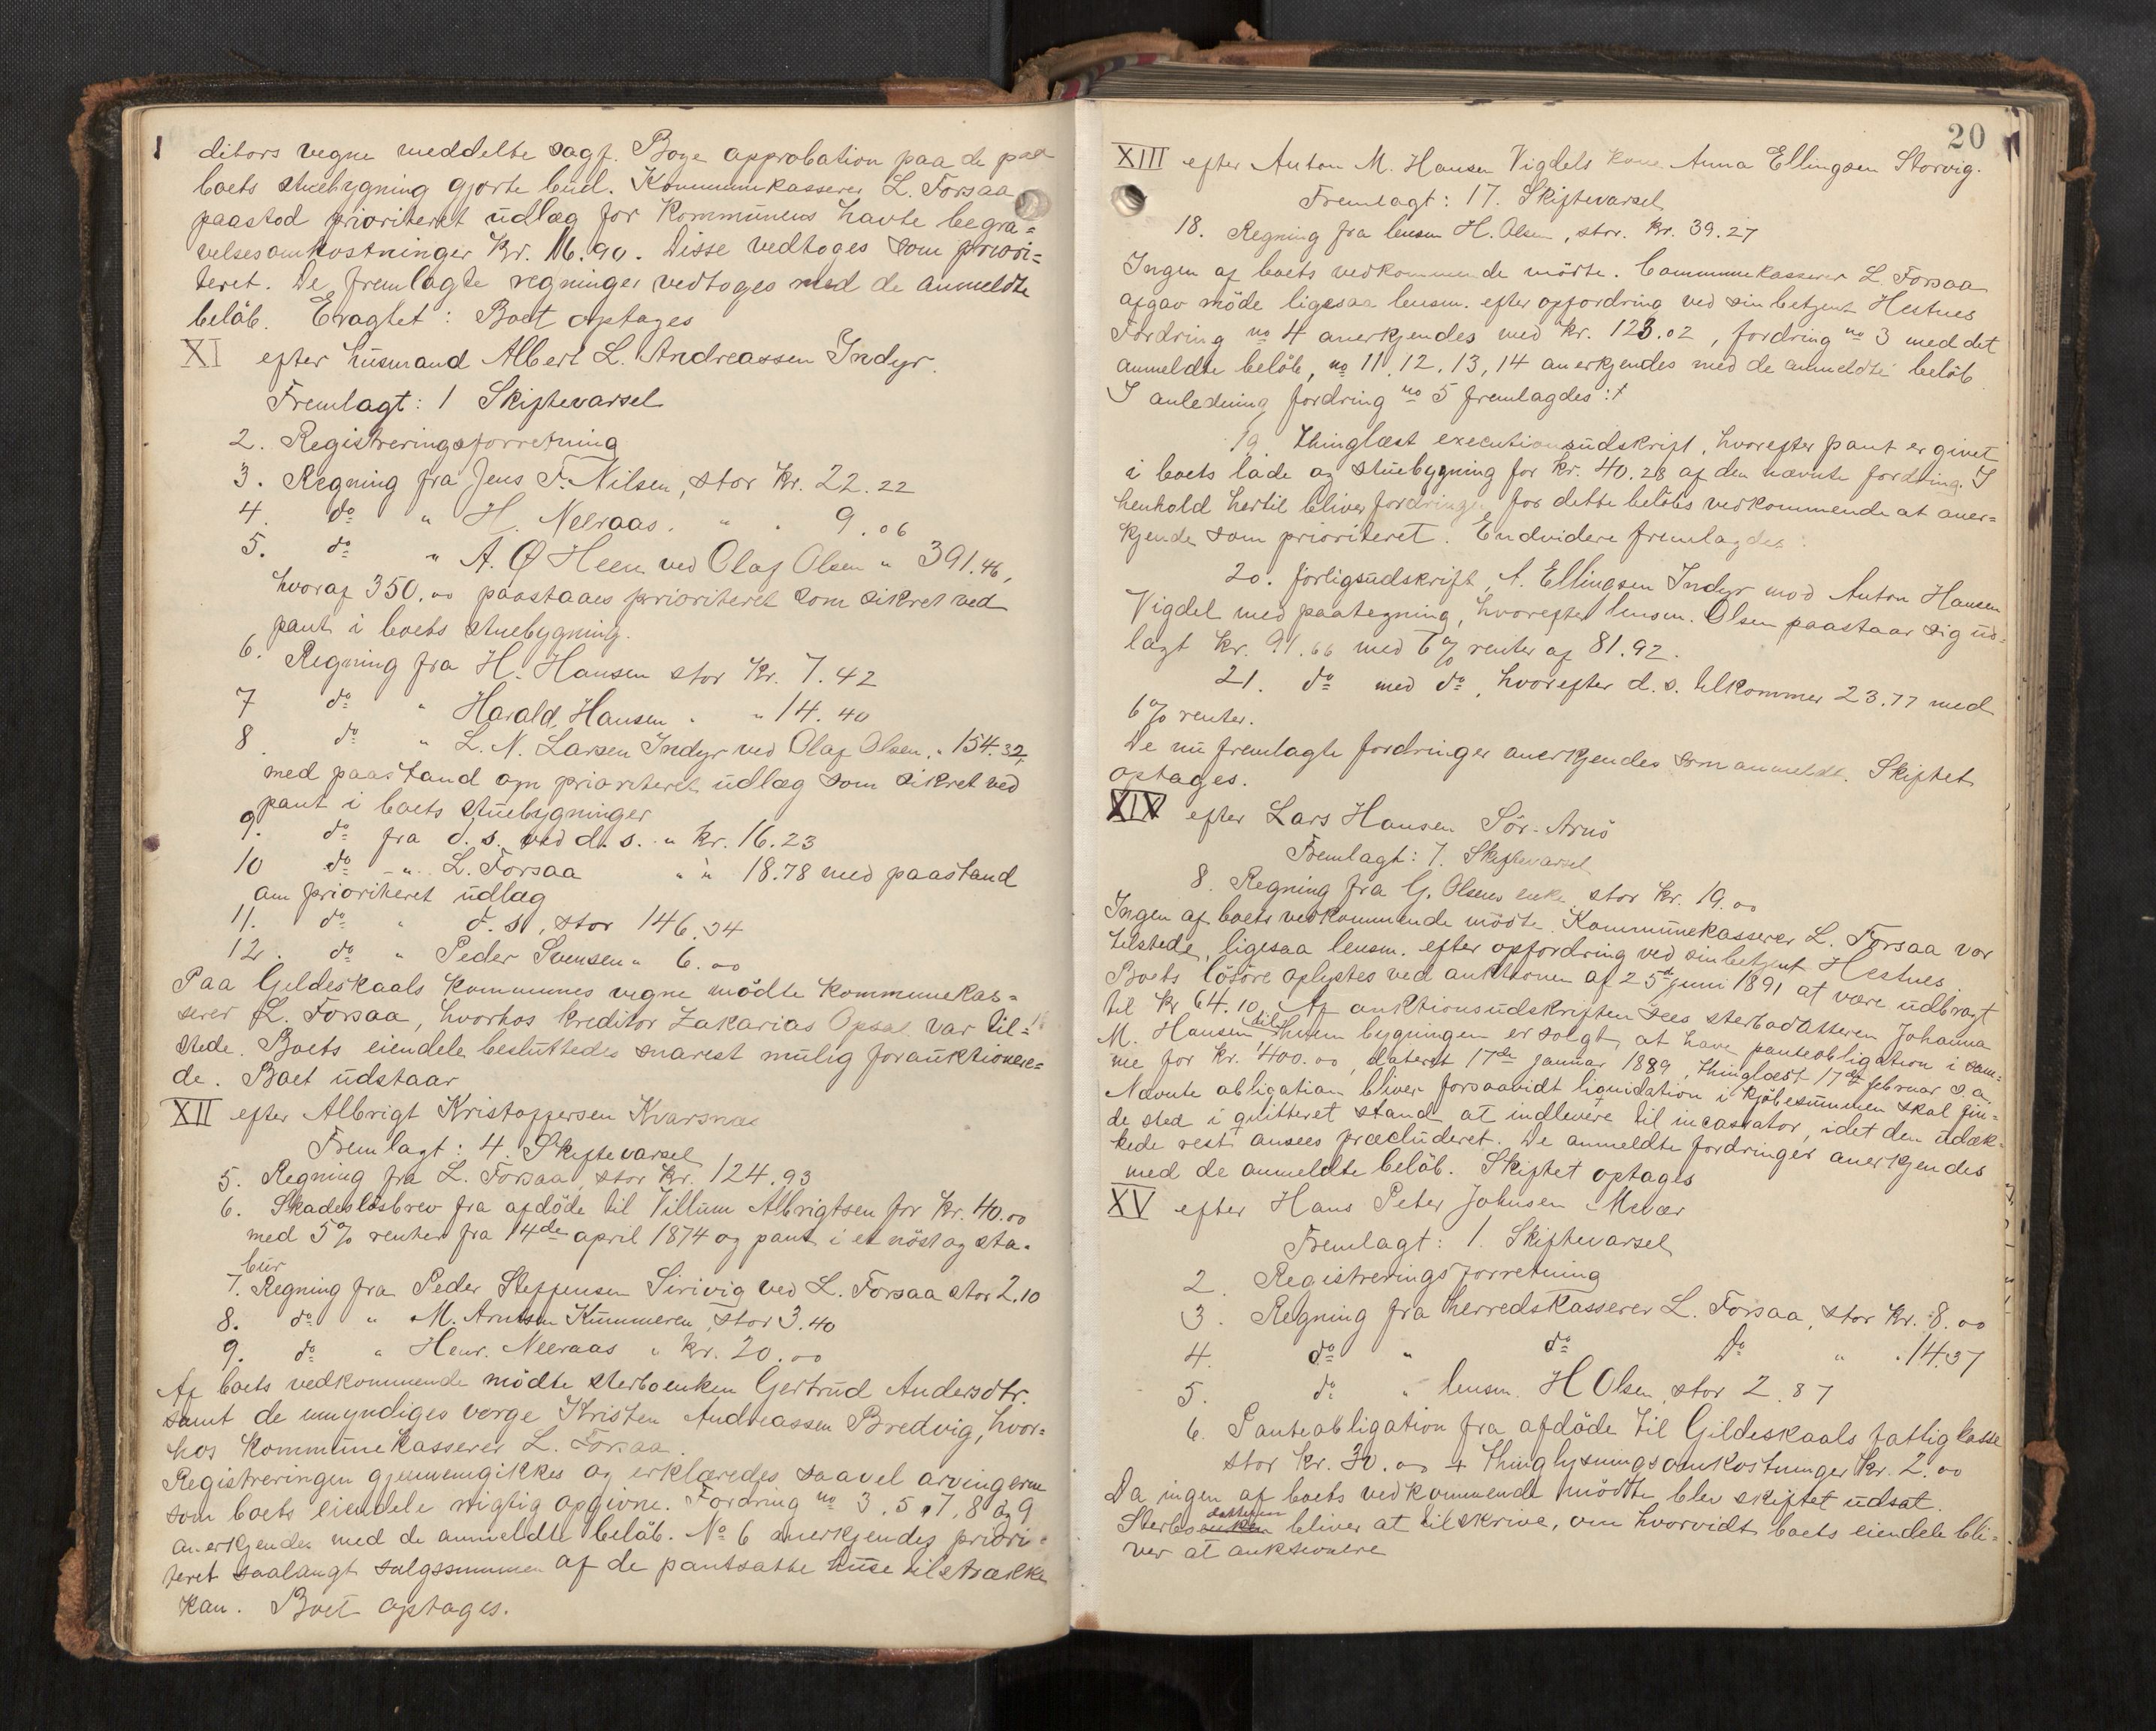 ditors vegne meddelte sagf. Boye approbation paa de paa
boets stuebygning gjorte bud. Kommunekasserer L. Forsaa
paastod prioriteret udlæg for Kommunens havte begra=
velsesomkostninger Kr. 16.90. Disse vedtoges som priori=
teret. De fremlagte regninger vedtoges med de anmeldte
belöb. Eragtet: Boet optages
XI efter husmand Albert L. Andreassen Indyr.
Fremlagt: 1 Skiftevarsel
2. Registreringsforretning
3. Regning fra Jens F. Nilsen, stor Kr. 22.22
4. do " H. Neeraas. " . 9.06
5. do " A. Ø Heen ved Olaf Olsen " 391.46,
hvoraf 350.00 paastaaes prioriteret som sikret ved
pant i boets stuebygning.
6. Regning fra H. Hansen stor Kr. 7.42
7 do " Harald Hansen " " 14.40
8. do " L. N. Larsen Indyr ved Olaf Olsen " 154.32,
med paastand om prioriteret udlæg som sikret ved
pant i boets stuebygninger
9. do fra d. s. ved d. s. " Kr. 16.23
10 do " L. Forsaa " " 18.78 med paastand
om prioriteret udlæg
11. do " d. s., stor 146.34
12. do " Peder Svensen " 6.00
Paa Gildeskaals Kommunes vegne mödte Kommunekas=
serer L. Forsaa, hvorhos kreditor Zakarias Opsal var til=
stede. Boets eiendele besluttedes snarest mulig forauktionere=
de. Boet udstaar
XII efter Albrigt Kristoffersen Kvarsnæs
Fremlagt: 4. Skiftevarsel
5. Regning fra L. Forsaa, stor Kr. 124.93
6. Skadeslösbrev fra afdöde til Villum Albrigtsen for Kr. 40.00
med 5% renter fra 14de april 1874 og pant i et nöst og sta=
bur
7. Regning fra Peder Steffensen Sirivig ved L. Forsaa stor 2.10
8. do " M. Arntsen Kummeren, stor 3.40
9. do " Henr. Neeraas " Kr. 20.00
Af boets vedkommende mödte sterboenken Gertrud Andersdtr.
samt de umyndiges verge Kristen Andreassen Bredvig, hvor=
hos Kommunekasserer L. Forsaa.
Registreringen gjennemgikkes og erklæredes saavel arvingerne
som boets eiendele rigtig opgivne. Fordring no 3, 5, 7, 8 og 9
anerkjendes med de anmeldte belöb. No 6 anerkjendes priori=
teret saalangt salgssummen af de pantsatte huse tilstrække
kan. Boet optages.
20
XIII efter Anton M. Hansen Vigdels kone Anna Ellingsen Storvig.
Fremlagt: 17. Skiftevarsel
18. Regning fra lensm H. Olsen, stor. Kr. 39.27
Ingen af boets vedkommende mödte. Communekasserer L. Forsaa
afgav möde ligesaa lensm. efter opfordring ved sin betjent Hestnes
Fordring no 4 anerkjendes med Kr. 123.02, fordring no 3 med det
anmeldte belöb, no 11, 12, 13, 14 anerkjendes med de anmeldte belöb.
I anledning fordring no 5 fremlagdes:
19. Thinglæst executionsudskrift, hvorefter pant er givet
i boets lade og stuebygning for Kr. 40.28 af den nævnte fordring. I
henhold hertil bliver fordringen for dette belöbs vedkommende at aner=
kjende som prioriteret. Endvidere fremlagdes:
20. forligsudskrift, A. Ellingsen Indyr mod Anton Hansen
Vigdel med paategning, hvorefter lensm. Olsen paastaar sig ud=
lagt Kr. 91.66 med 6% renter af 81.92.
21. do med do, hvorefter d. s. tilkommer 23.77 med
6% renter.
De nu fremlagte fordringer anerkjendes som anmeldt. Skiftet
optages.
XIV efter Lars Hansen Sör-Arnö
Fremlagt: 7. Skiftevarsel
8. Regning fra G. Olsens enke stor Kr. 19.00
Ingen af boets vedkommende mödte. Kommunekasserer L. Forsaa var
tilstede, ligesaa lensm. efter opfordring ved sin betjent Hestnes
Boets lösöre oplystes ved auktionen af 25de juni 1891 at være udbragt
til Kr 64.10. Af auktionsudskriften sees sterbodatteren Johanna
M. Hansen til hvem bygningen er solgt, at have panteobligation i sam=
me for Kr. 400.00, dateret 17de januar 1889, thinglæst 17de februar s. a.
Nævnte obligation bliver forsaavidt liquidation i kjöbesummen skal fin=
de sted i qvitteret stand at indlevere til incassator, idet den udæk=
kede rest ansees præcluderet. De anmeldte fordringer anerkjendes
med de anmeldte belöb. Skiftet optages
XV efter Hans Peter Johnsen Mevær
Fremlagt: 1. Skiftevarsel
2. Registreringsforretning
3. Regning fra herredskasserer L. Forsaa, stor Kr. 8.00
4. do " do Do " . 14.37
5. do " lensm. H Olsen, stor 2.87
6. Panteobligation fra afdöde til Gildeskaals fattigkasse
stor Kr. 30.00 + thinglysningsomkostninger Kr. 2.00
Da ingen af boets vedkommende mödte blev skiftet udsat.
Sterbodatteren bliver at tilskrive, om hvorvidt boets eiendele bli=
ver at auktionere